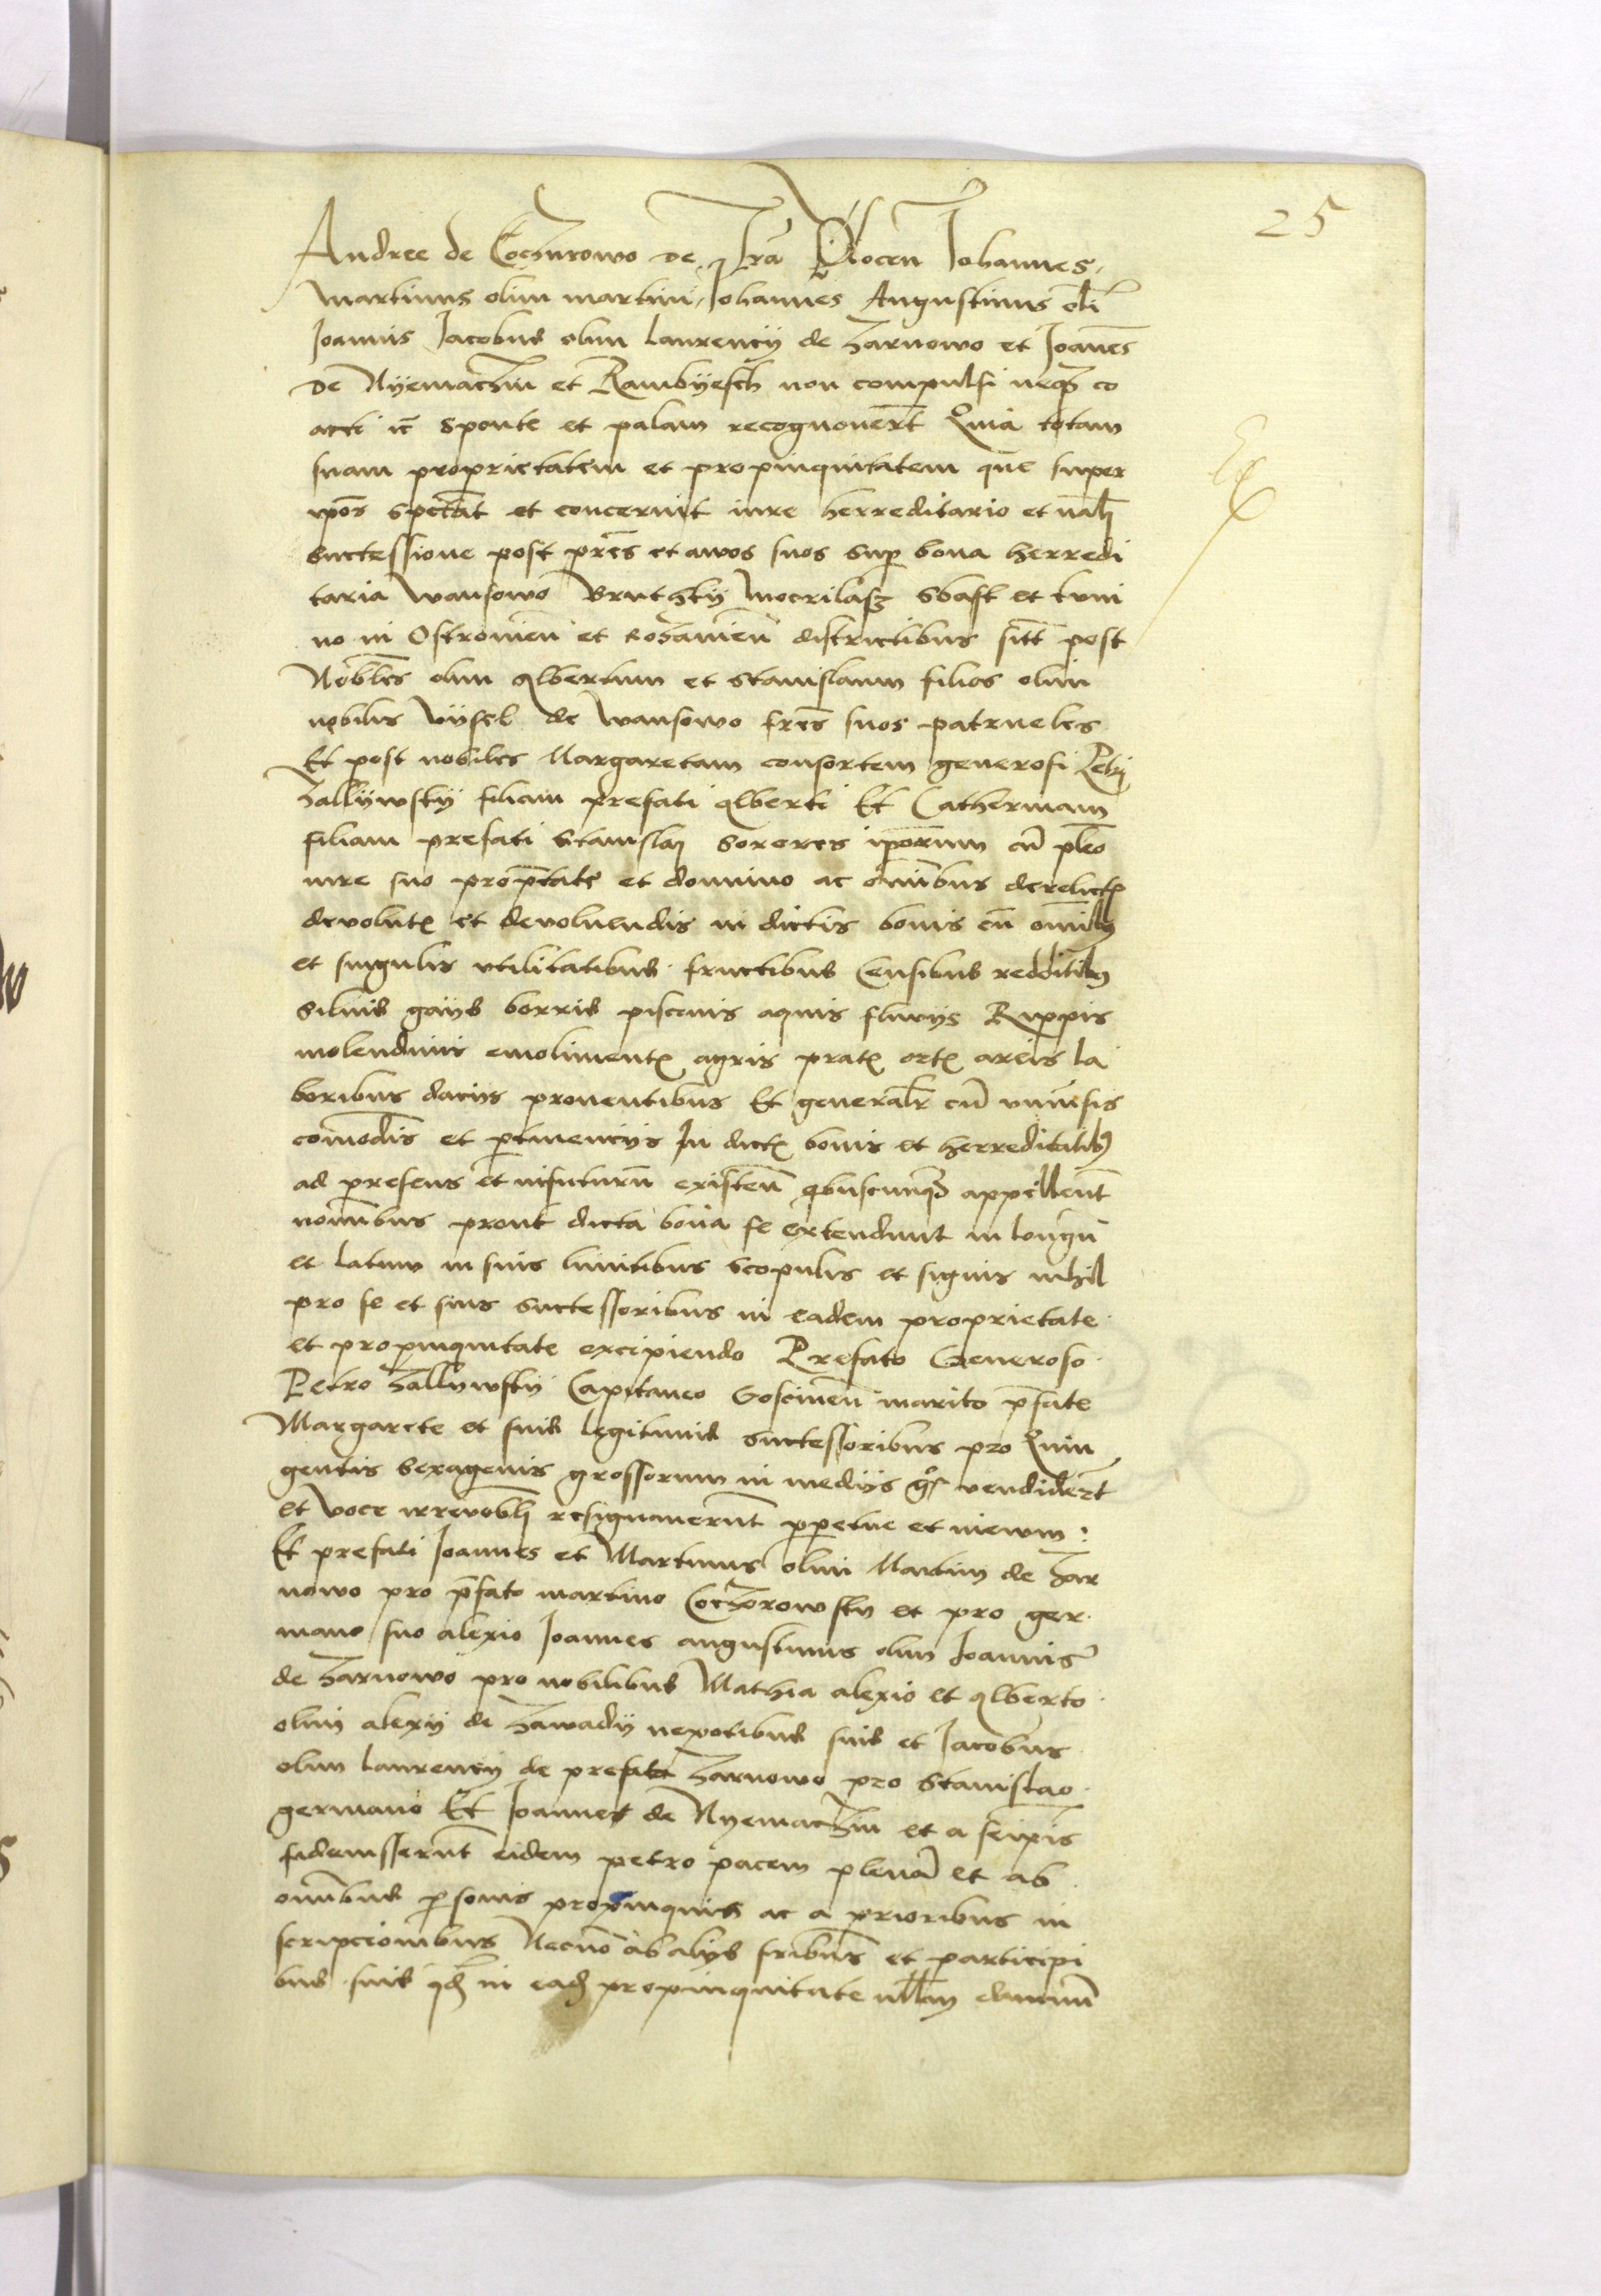 25
Andree de Coczurowo de Tra Plocen Johannes
martinus olim martini Johannes Augustinus oli
Joannis Jacobus olim Laurencij de Zarnowo et Joanes
de Nyemaczin et Rambyesch non compulsi neqz co
acti ic sponte et palam recognouert Quia totam
suam proprietatem et propinquitatem que super
ipos spectat et concernit iure herreditario et
successione post pres et auos suos sup bona herredi
taria Wansowo Bruthky Mocrilasz et
no in Ostrouien et Rozanien districtibus sitt post
Nobles olim Albertum et Stanislaum filios olim
nobilis Vysel de Wansowo fres suos patrueles
Et post nobiles Margaretam consortem generosi Petri
Zallywsky filiam prefati Alberti Et Catherinam
filiam prefati Stanislai sorores iporum cu pleo
iure suo proptate et dominio ac omibus derelictis
deuolutis et deuoluendis in dictis bonis cu omibz
et singulis vtilitatibus fructibus Censibus redditibz
siluis gays borris piscinis aquis fluuys Rippis
molendinis emolimentis agris pratis ortis areis la
boribus dacys prouentibus Et generalr cu vniusis
comodis et ptinencys In dictis bonis et herreditatibz
ad presens et infuturu existen qbuscumqz appellent
nominibus prout dicta bona se extendunt in longu
et latum in suis limitibus scopulis et signis nihil
pro se et suis successoribus in eadem proprietate
et propinquitate excipiendo Prefato Generoso
Petro Zallywsky Capitaneo Gosinen marito pfate
Margarete et suis legitimis successoribus pro Quin
gentis sexagenis grossorum in medys gr vendidert
et voce irreuobli resignauerunt ppetue et ineuum :
Et prefati Joannes et Martinus olim Martini de Zar
nowo pro pfato martino Coczurowsky et pro ger
mano suo alexio Joannes augustinus olim Joannis
de Zarnowo pro nobilibus Mathia alexio et Alberto
olim alexy de Zawady nepotibus suis et Jacobus
olim Laurency de prefata Zarnowo pro Stanislao
germano Et Joannes de Nyemaczin et a seipis
fideiusserunt eidem petro pacem plena et ab
omibus psonis propinquis ac a prioribus in
scripcionibus Necno ab alys fribus et participi
bus suis in eadz propinquitate